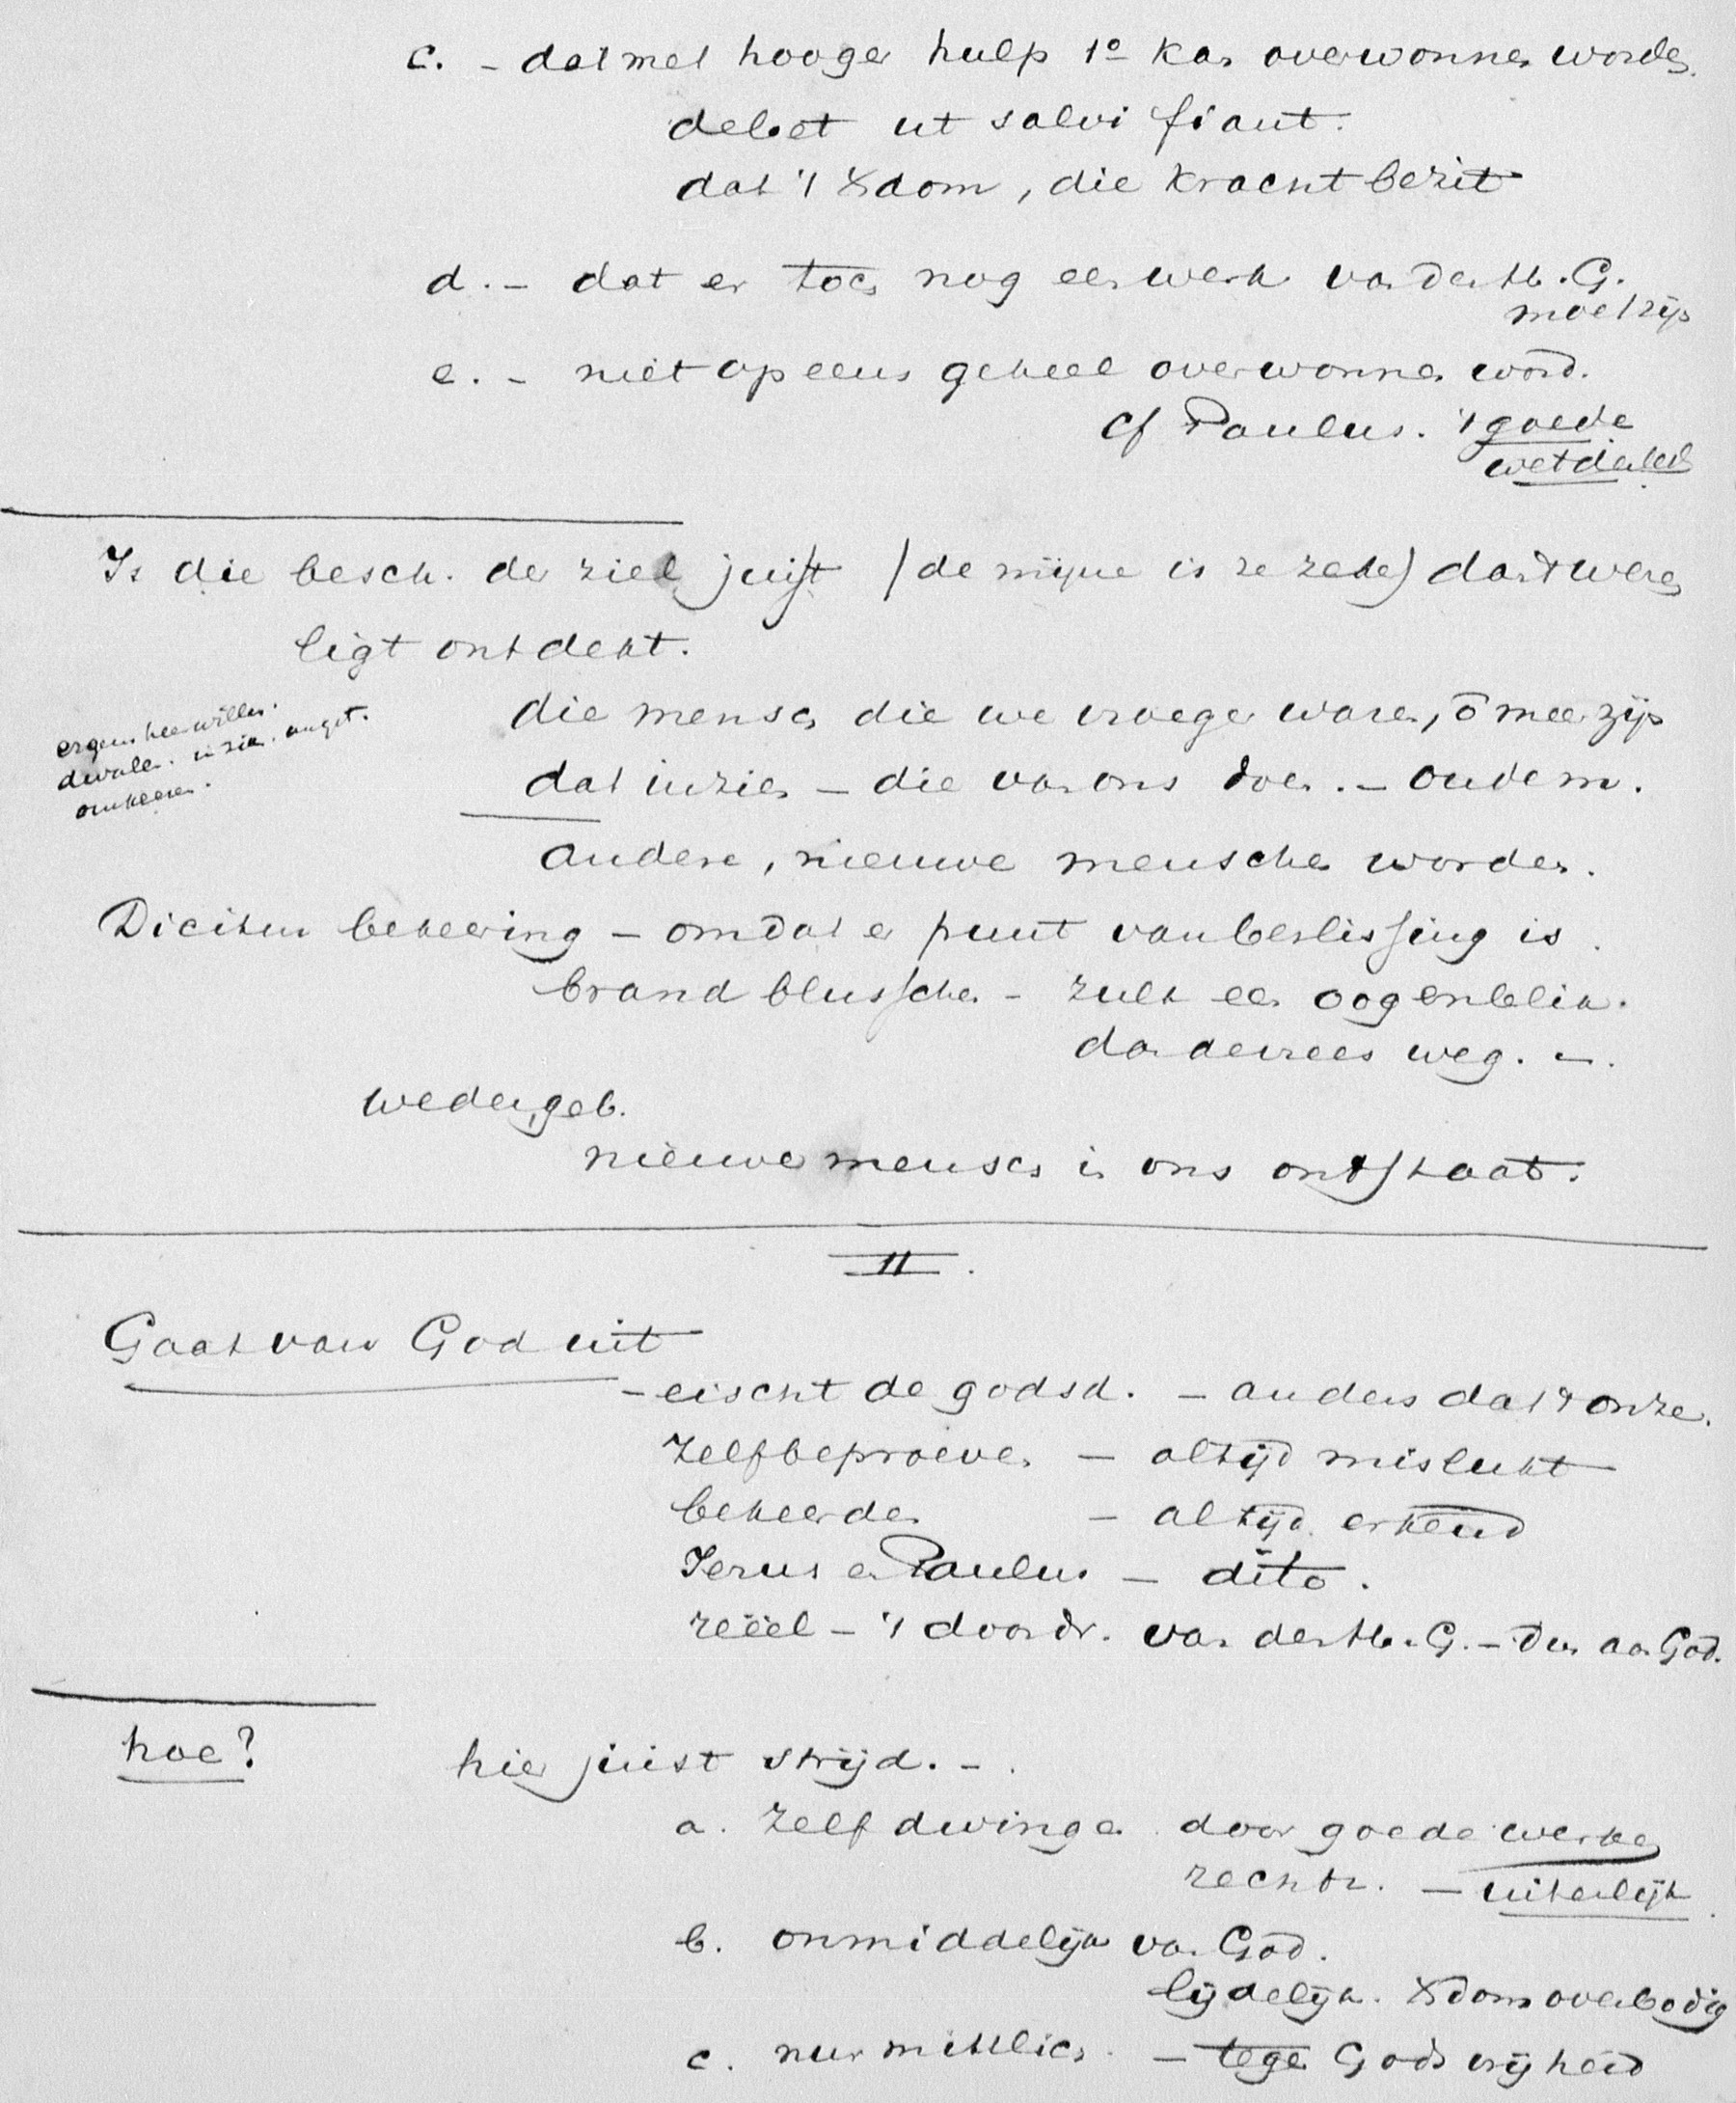 c. – dat met hooger hulp 1º kan overwonnen worden.
debet ut salvi fiant.
dat 't Xdom, die kracht bezit
d. – dat er toch nog een werk van den H. G.
moet zijn
e. – niet opeens geheel overwonnen word.
cf Paulus. 't goede
Is die besch. der ziel juist (de mijne is ze zeker) dan 't wezen
ligt ontdekt.
die mensch die we vroeger waren, õ meer zijn
ergens heen willen.
dwalen. inzien. angst.
omkeeren.
dat inzien – die van ons doen. – oude m.
andere, nieuwe menschen worden.
Dicitur bekeering – omdat er punt van beslissing is.
brand blusschen – zulk een oogenblik.
dan de vrees weg. –.
wedergeb.
nieuwe mensch in ons ontstaat.
II.
Gaat van God uit
– eischt de godsd. – anders dat 't onze.
Zelfbeproeven – altijd mislukt
bekeerden – altijd erkend
Jezus en Paulus – dito.
reëel – 't doordr. van den H. G. – dus aan God.
hoe? hier juist strijd. –.
a. Zelf dwingen door goede werken
rechtv. – uiterlijk.
b. onmiddelijk van God.
lijdelijk. Xdom overbodig
c. nur mittlich. – tegen Gods vrijheid